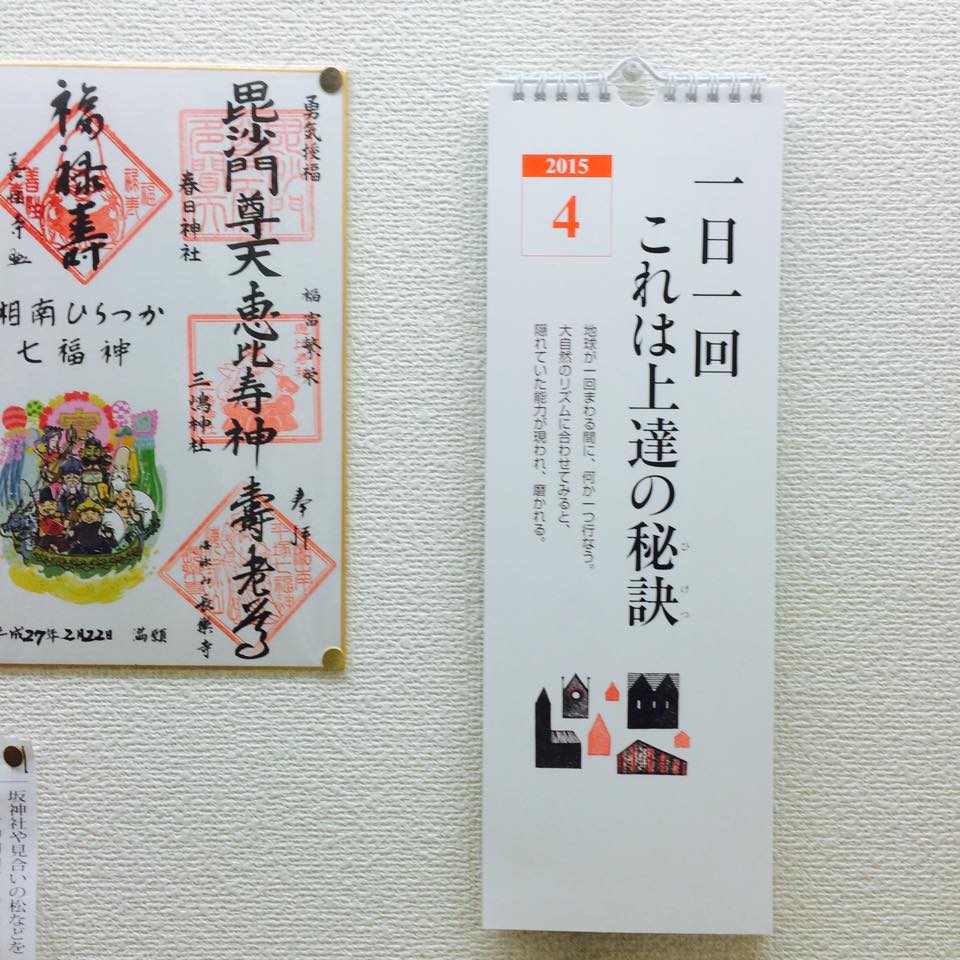 2015
4
一日一回
これは上達の秘訣
ひけつ
地球が一回まわる間に、何か一つ行なう。
大自然のリズムに合わせてみると、
隠れていた能力が現われ、磨かれる。
勇気授福
毘沙門尊天
春日神社
福富繁栄
恵比寿神
三嶋神社
奉拝
寿老尊
長楽寺
福禄寿
相南ひらつか
七福神
平成27年2月22日 満願
坂神社や見合いの松などを